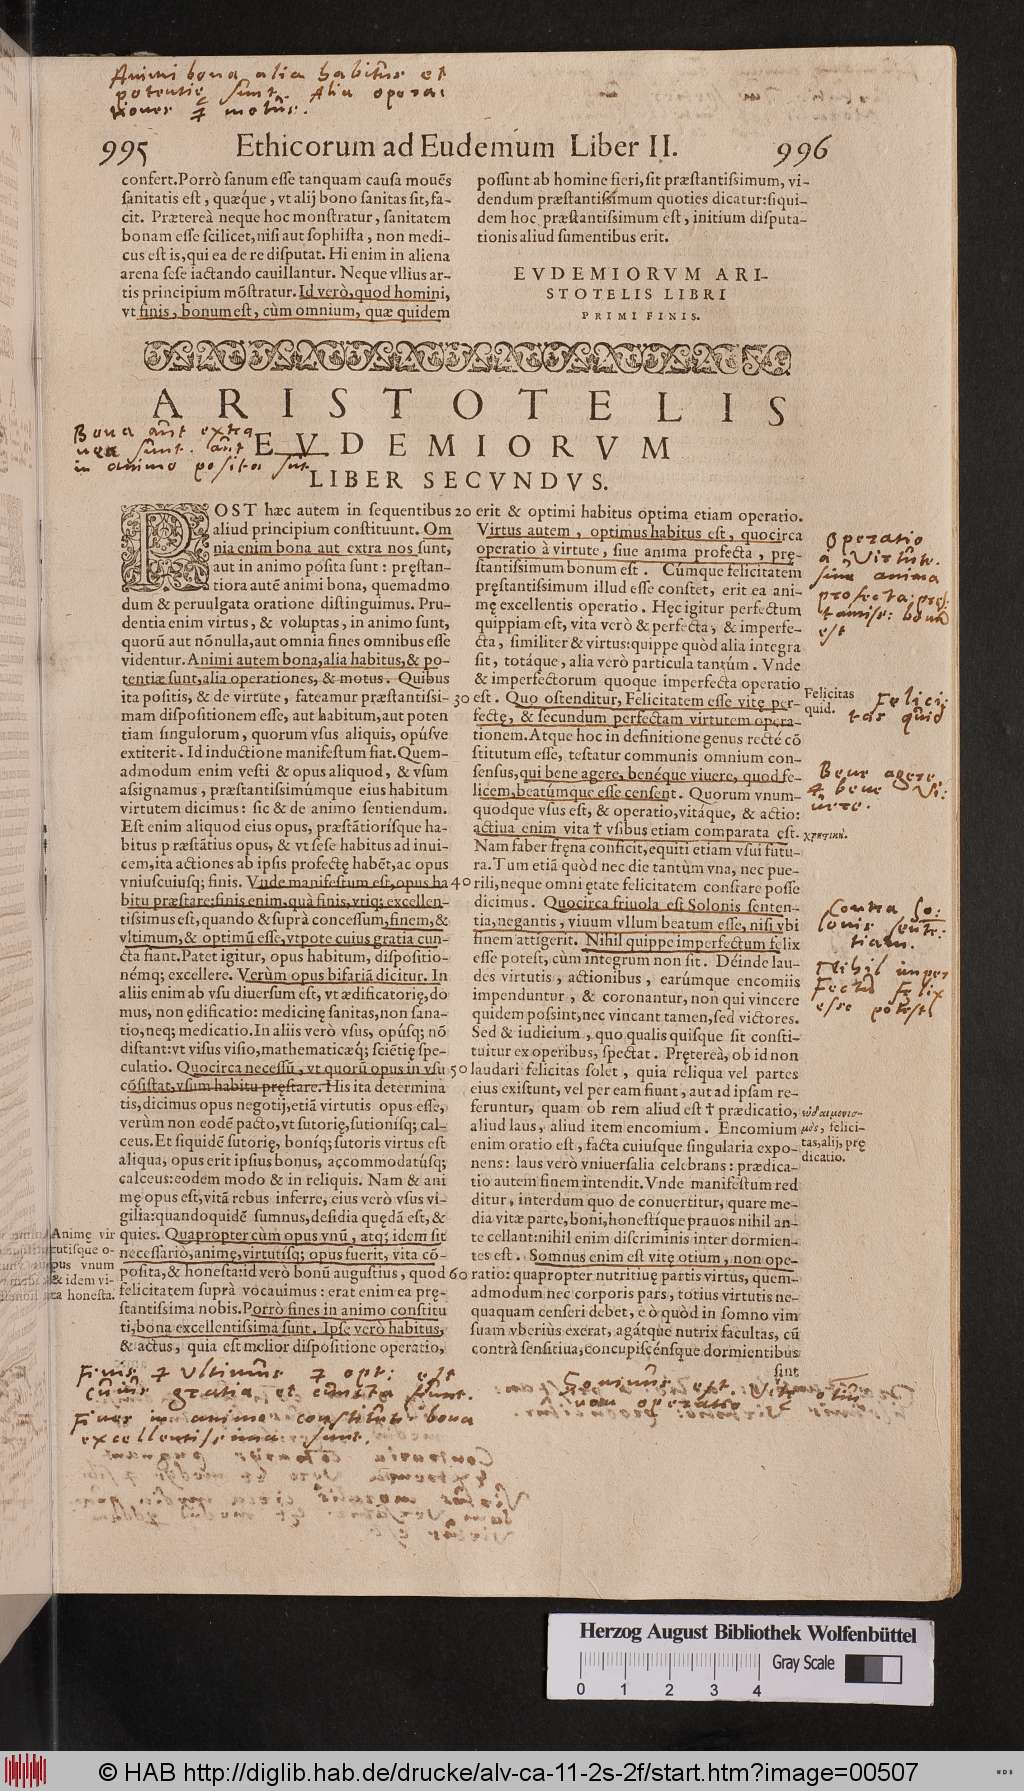 Animi bona alia habitus et
potentię sunt. Alia opera-
tiones & motus.
995 Ethicorum ad Eudemum Liber II. 996
confert. Porrò sanum esse tanquam causa mouēs
sanitatis est, quæque, vt alij bono sanitas sit, fa-
cit. Prætereà neque hoc monstratur, sanitatem
bonam esse scilicet, nisi aut sophista, non medi-
cus est is, qui ea de re disputat. Hi enim in aliena
arena sese iactando cauillantur. Neque vllius ar-
tis principium mōstratur. Id verò, quod homini,
vt finis, bonum est, cùm omnium, quæ quidem
possunt ab homine fieri, sit præstantissimum, vi-
dendum præstantissimum quoties dicatur: siqui-
dem hoc præstantissimum est, initium disputa-
tionis aliud sumentibus erit.
EVDEMIORVM ARI-
STOTELIS LIBRI
PRIMI FINIS.
ARISTOTELIS
EVDEMIORVM
LIBER SECVNDVS.
Bona aūt extra
in animo posita sūt
POST hæc autem in sequentibus
aliud principium constituunt. Om
nia enim bona aut extra nos sunt,
aut in animo posita sunt: pręstan-
tiora autē animi bona, quemadmo
dum & peruulgata oratione distinguimus. Pru-
dentia enim virtus, & voluptas, in animo sunt,
quorū aut nōnulla, aut omnia fines omnibus esse
videntur. Animi autem bona, alia habitus, & po-
tentiæ sunt, alia operationes, & motus. Quibus
ita positis, & de virtute, fateamur præstantissi-
mam dispositionem esse, aut habitum, aut poten
tiam singulorum, quorum vsus aliquis, opúsve
extiterit. Id inductione manifestum fiat. Quem-
admodum enim vesti & opus aliquod, & vsum
assignamus, præstantissimúmque eius habitum
virtutem dicimus: sic & de animo sentiendum.
Est enim aliquod eius opus, præstātiorísque ha-
bitus præstātius opus, & vt sese habitus ad inui-
cem, ita actiones ab ipsis profectę habēt, ac opus
vniuscuiusq; finis. Vnde manifestum est, opus ha
bitu præstare: finis enim, quà finis, vtiq; excellen-
tissimus est, quando & suprà concessum, finem, &
vltimum, & optimū esse, vtpote cuius gratia cun-
cta fiant. Patet igitur, opus habitum, dispositio-
némq; excellere. Verùm opus bifariā dicitur. In
aliis enim ab vsu diuersum est, vt ædificatorię, do
mus, non ędificatio: medicinę sanitas, non sana-
tio, neq; medicatio. In aliis verò vsus, opúsq; nō
distant: vt visus visio, mathematicæq́; sciētię spe-
culatio. Quocirca necessū, vt quorū opus in vsu
cōsistat, vsum habitu pręstare. His ita determina
tis, dicimus opus negotij, etiā virtutis opus esse,
verùm non eodē pacto, vt sutorię, sutionísq; cal-
ceus. Et siquidē sutorię, boníq; sutoris virtus est
aliqua, opus erit ipsius bonus, accommodatúsq;
calceus: eodem modo & in reliquis. Nam & ani
mę opus est, vitā rebus inferre, eius verò vsus vi-
gilia: quandoquidē sumnus, desidia quędā est, &
quies. Quapropter cùm opus vnū, atq; idem sit
necessariò, animę, virtutísq; opus fuerit, vita cō-
posita, & honesta: id verò bonū augustius, quod
felicitatem suprà vocauimus: erat enim ea prę-
stantissima nobis. Porrò fines in animo constitu
ti, bona excellentissima sunt. Ipse verò habitus,
& actus, quia est melior dispositione operatio,
Animę vir
tutisque o-
pus vnum
& idem vi-
ta honesta.
20 erit & optimi habitus optima etiam operatio.
Virtus autem, optimus habitus est, quocirca
operatio à virtute, siue anima profecta, prę-
stantissimum bonum est. Cúmque felicitatem
pręstantissimum illud esse constet, erit ea ani-
mę excellentis operatio. Hęc igitur perfectum
quippiam est, vita verò & perfecta, & imperfe-
cta, similiter & virtus: quippe quòd alia integra
sit, totáque, alia verò particula tantùm. Vnde
& imperfectorum quoque imperfecta operatio
30 est. Quo ostenditur, Felicitatem esse vitę per-
fectę, & secundum perfectam virtutem opera-
tionem. Atque hoc in definitione genus rectè cō
stitutum esse, testatur communis omnium con-
sensus, qui bene agere, benéque viuere, quod fe-
licem, beatúmque esse censent. Quorum vnum-
quodque vsus est, & operatio, vitáque, & actio:
actiua enim vita † vsibus etiam comparata est.
Nam faber fręna conficit, equiti etiam vsui futu-
ra. Tum etiā quòd nec die tantùm vna, nec pue-
40 rili, neque omni ętate felicitatem constare posse
dicimus. Quocirca friuola est Solonis senten-
tia, negantis, viuum vllum beatum esse, nisi vbi
finem attigerit. Nihil quippe imperfectum felix
esse potest, cùm integrum non sit. Déinde lau-
des virtutis, actionibus, earúmque encomiis
impenduntur, & coronantur, non qui vincere
quidem possint, nec vincant tamen, sed victores.
Sed & iudicium, quo qualis quisque sit consti-
tuitur ex operibus, spectat. Prętereà, ob id non
50 laudari felicitas solet, quia reliqua vel partes
eius existunt, vel per eam fiunt, aut ad ipsam re-
feruntur, quam ob rem aliud est † prædicatio,
aliud laus, aliud item encomium. Encomium
enim oratio est, facta cuiusque singularia expo-
nens: laus verò vniuersalia celebrans: prædica-
tio autem finem intendit. Vnde manifestum red
ditur, interdum quo de conuertitur, quare me-
dia vitæ parte, boni, honestíque prauos nihil an-
te cellant: nihil enim discriminis inter dormien-
tes est. Somnus enim est vitę otium, non ope-
60 ratio: quapropter nutritiuę partis virtus, quem-
admodum nec corporis pars, totius virtutis ne-
quaquam censeri debet, eò quòd in somno vim
suam vberiùs exerat, agátque nutrix facultas, cū
contrà sensitiua, concupiscénsque dormientibus
sint
Operatio
à Virtute.
siue anima
profecta; pręs-
tantiss: bonū
est
Felicitas
quid.
Felici-
tas quid
Bene agere
& bene Vi-
uere.
Contra So-
lonis senten-
tiam.
Nihil imper
fectū felix
esse potest
tas, alij, prę
dicatio.
Finis & Vltimus & opt: est
cuius gratia et cuncta fiunt.
Fines in animo constituti bona
excellentissima sunt.
Somnus est Vitę otium
non operatio
Herzog August Bibliothek Wolfenbüttel
Gray Scale
0 1 2 3 4
© HAB http://diglib.hab.de/drucke/alv-ca-11-2s-2f/start.htm?image=00507